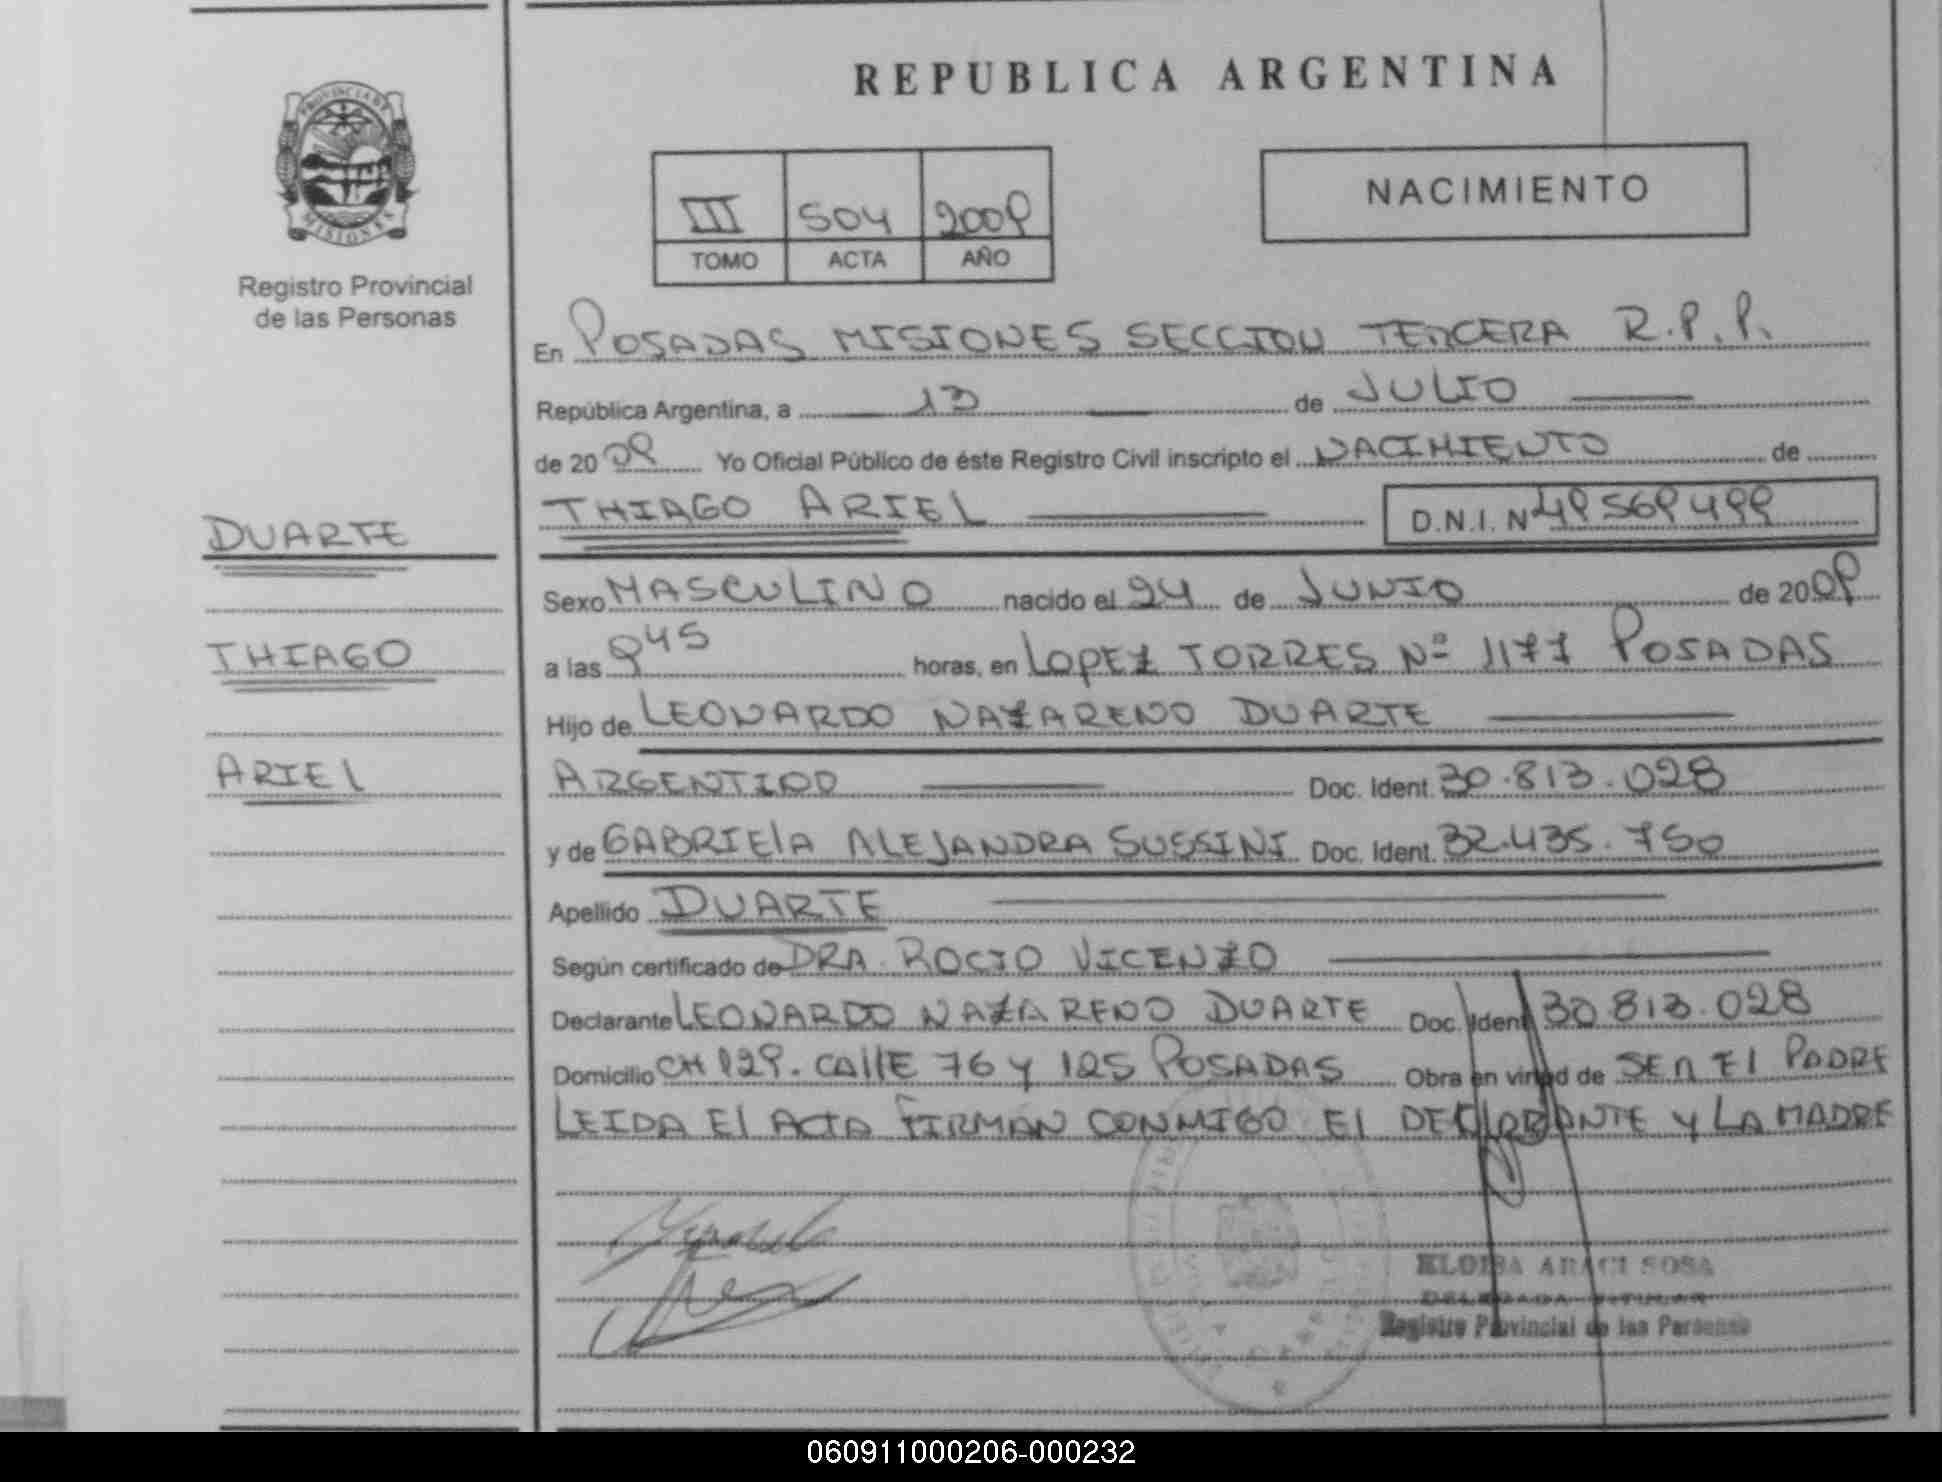 REPUBLICA ARGENTINA
PROVINCIA DE
MISIONES
Registro Provincial
de las Personas
NACIMIENTO
III 504 2009
TOMO ACTA AÑO
En POSADAS MISIONES SECCION TERCERA R.P.P.
República Argentina, a 13 de JULIO
de 2009 Yo Oficial Público de éste Registro Civil inscripto el NACIMIENTO de
THIAGO ARIEL D.N.I. Nº 49569499
DUARTE
Sexo MASCULINO nacido el 24 de JUNIO de 2009
THIAGO
a las 9 45 horas, en LOPEZ TORRES Nº 1177 POSADAS
Hijo de LEONARDO NAZARENO DUARTE
ARIEL
ARGENTINO Doc. Ident. 30.813.028
y de GABRIELA ALEJANDRA SUSSINI Doc. Ident. 32.435.750
Apellido DUARTE
Según certificado de DRA. ROCIO VICENZO
Declarante LEONARDO NAZARENO DUARTE Doc. Ident. 30.813.028
Domicilio CH 129. CALLE 76 Y 125 POSADAS Obra en virtud de SER EL PADRE
LEIDA EL ACTA FIRMAN CONMIGO EL DECLARANTE Y LA MADRE
ELOISA ARACI SOSA
DELEGADA TITULAR
Registro Provincial de las Personas
060911000206-000232